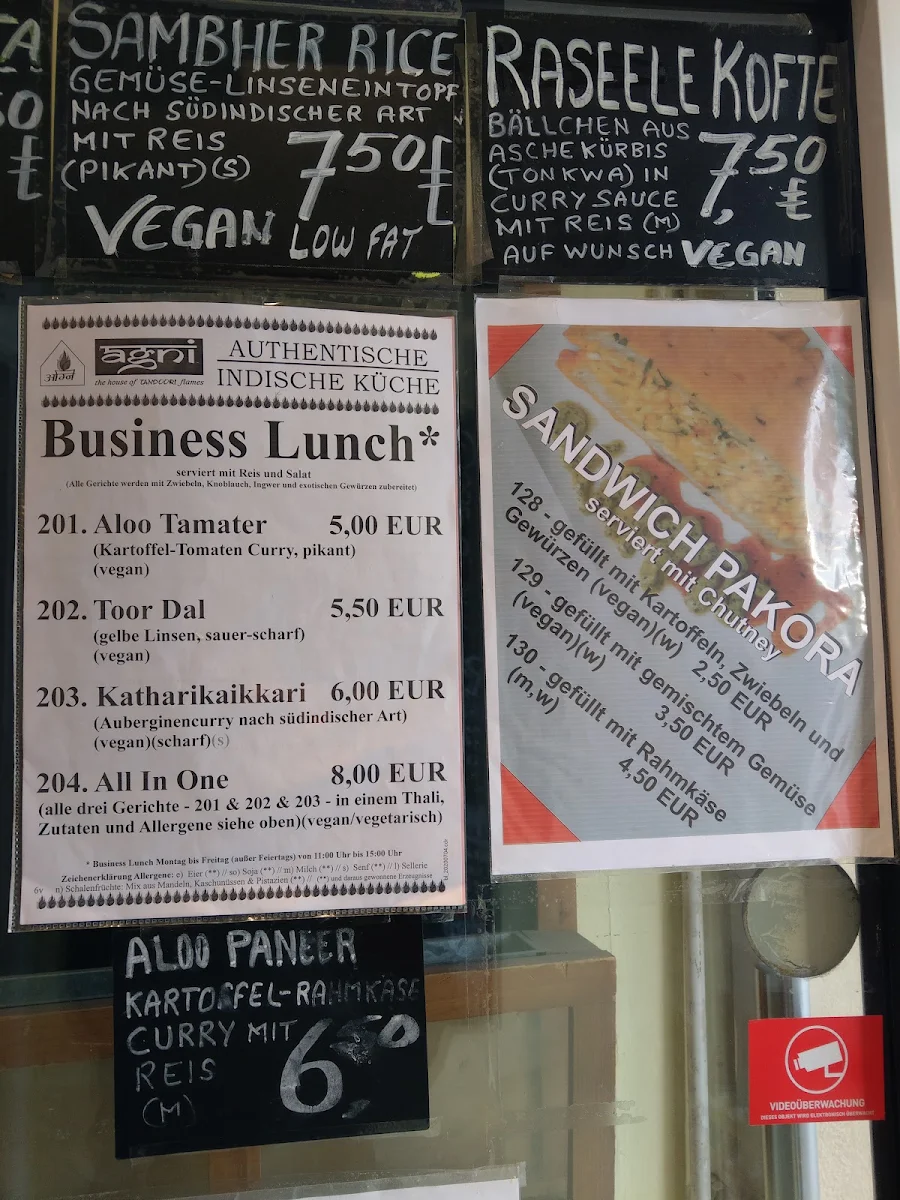 A
50
€
SAMBHER RICE
GEMÜSE-LINSENEINTOPF
NACH SÜDINDISCHER ART
MIT REIS
(PIKANT)(S)
7,50€
VEGAN LOW FAT
RASEELE KOFTE
BÄLLCHEN AUS
ASCHEKÜRBIS
(TONKWA) IN
CURRY SAUCE
MIT REIS (M)
7,50 €
AUF WUNSCH VEGAN
ओग्नं
agni
the house of TANDOORI flames
AUTHENTISCHE
INDISCHE KÜCHE
Business Lunch*
serviert mit Reis und Salat
(Alle Gerichte werden mit Zwiebeln, Knoblauch, Ingwer und exotischen Gewürzen zubereitet)
201. Aloo Tamater 5,00 EUR
(Kartoffel-Tomaten Curry, pikant)
(vegan)
202. Toor Dal 5,50 EUR
(gelbe Linsen, sauer-scharf)
(vegan)
203. Katharikaikkari 6,00 EUR
(Auberginencurry nach südindischer Art)
(vegan)(scharf)(s)
204. All In One 8,00 EUR
(alle drei Gerichte - 201 & 202 & 203 - in einem Thali,
Zutaten und Allergene siehe oben)(vegan/vegetarisch)
* Business Lunch Montag bis Freitag (außer Feiertags) von 11:00 Uhr bis 15:00 Uhr
Zeichenerklärung Allergene: e) Eier (**) // so) Soja (**) // m) Milch (**) // s) Senf (**) // l) Sellerie
6v n) Schalenfrüchte: Mix aus Mandeln, Kaschunüssen & Pistazien (**) // (**) und daraus gewonnene Erzeugnisse
SANDWICH PAKORA
serviert mit Chutney
128 - gefüllt mit Kartoffeln, Zwiebeln und
Gewürzen (vegan)(w) 2,50 EUR
129 - gefüllt mit gemischtem Gemüse
(vegan)(w) 3,50 EUR
130 - gefüllt mit Rahmkäse
(m,w) 4,50 EUR
ALOO PANEER
KARTOFFEL-RAHMKÄSE
CURRY MIT
REIS
(M)
6,50
VIDEOÜBERWACHUNG
DIESES OBJEKT WIRD ELEKTRONISCH ÜBERWACHT